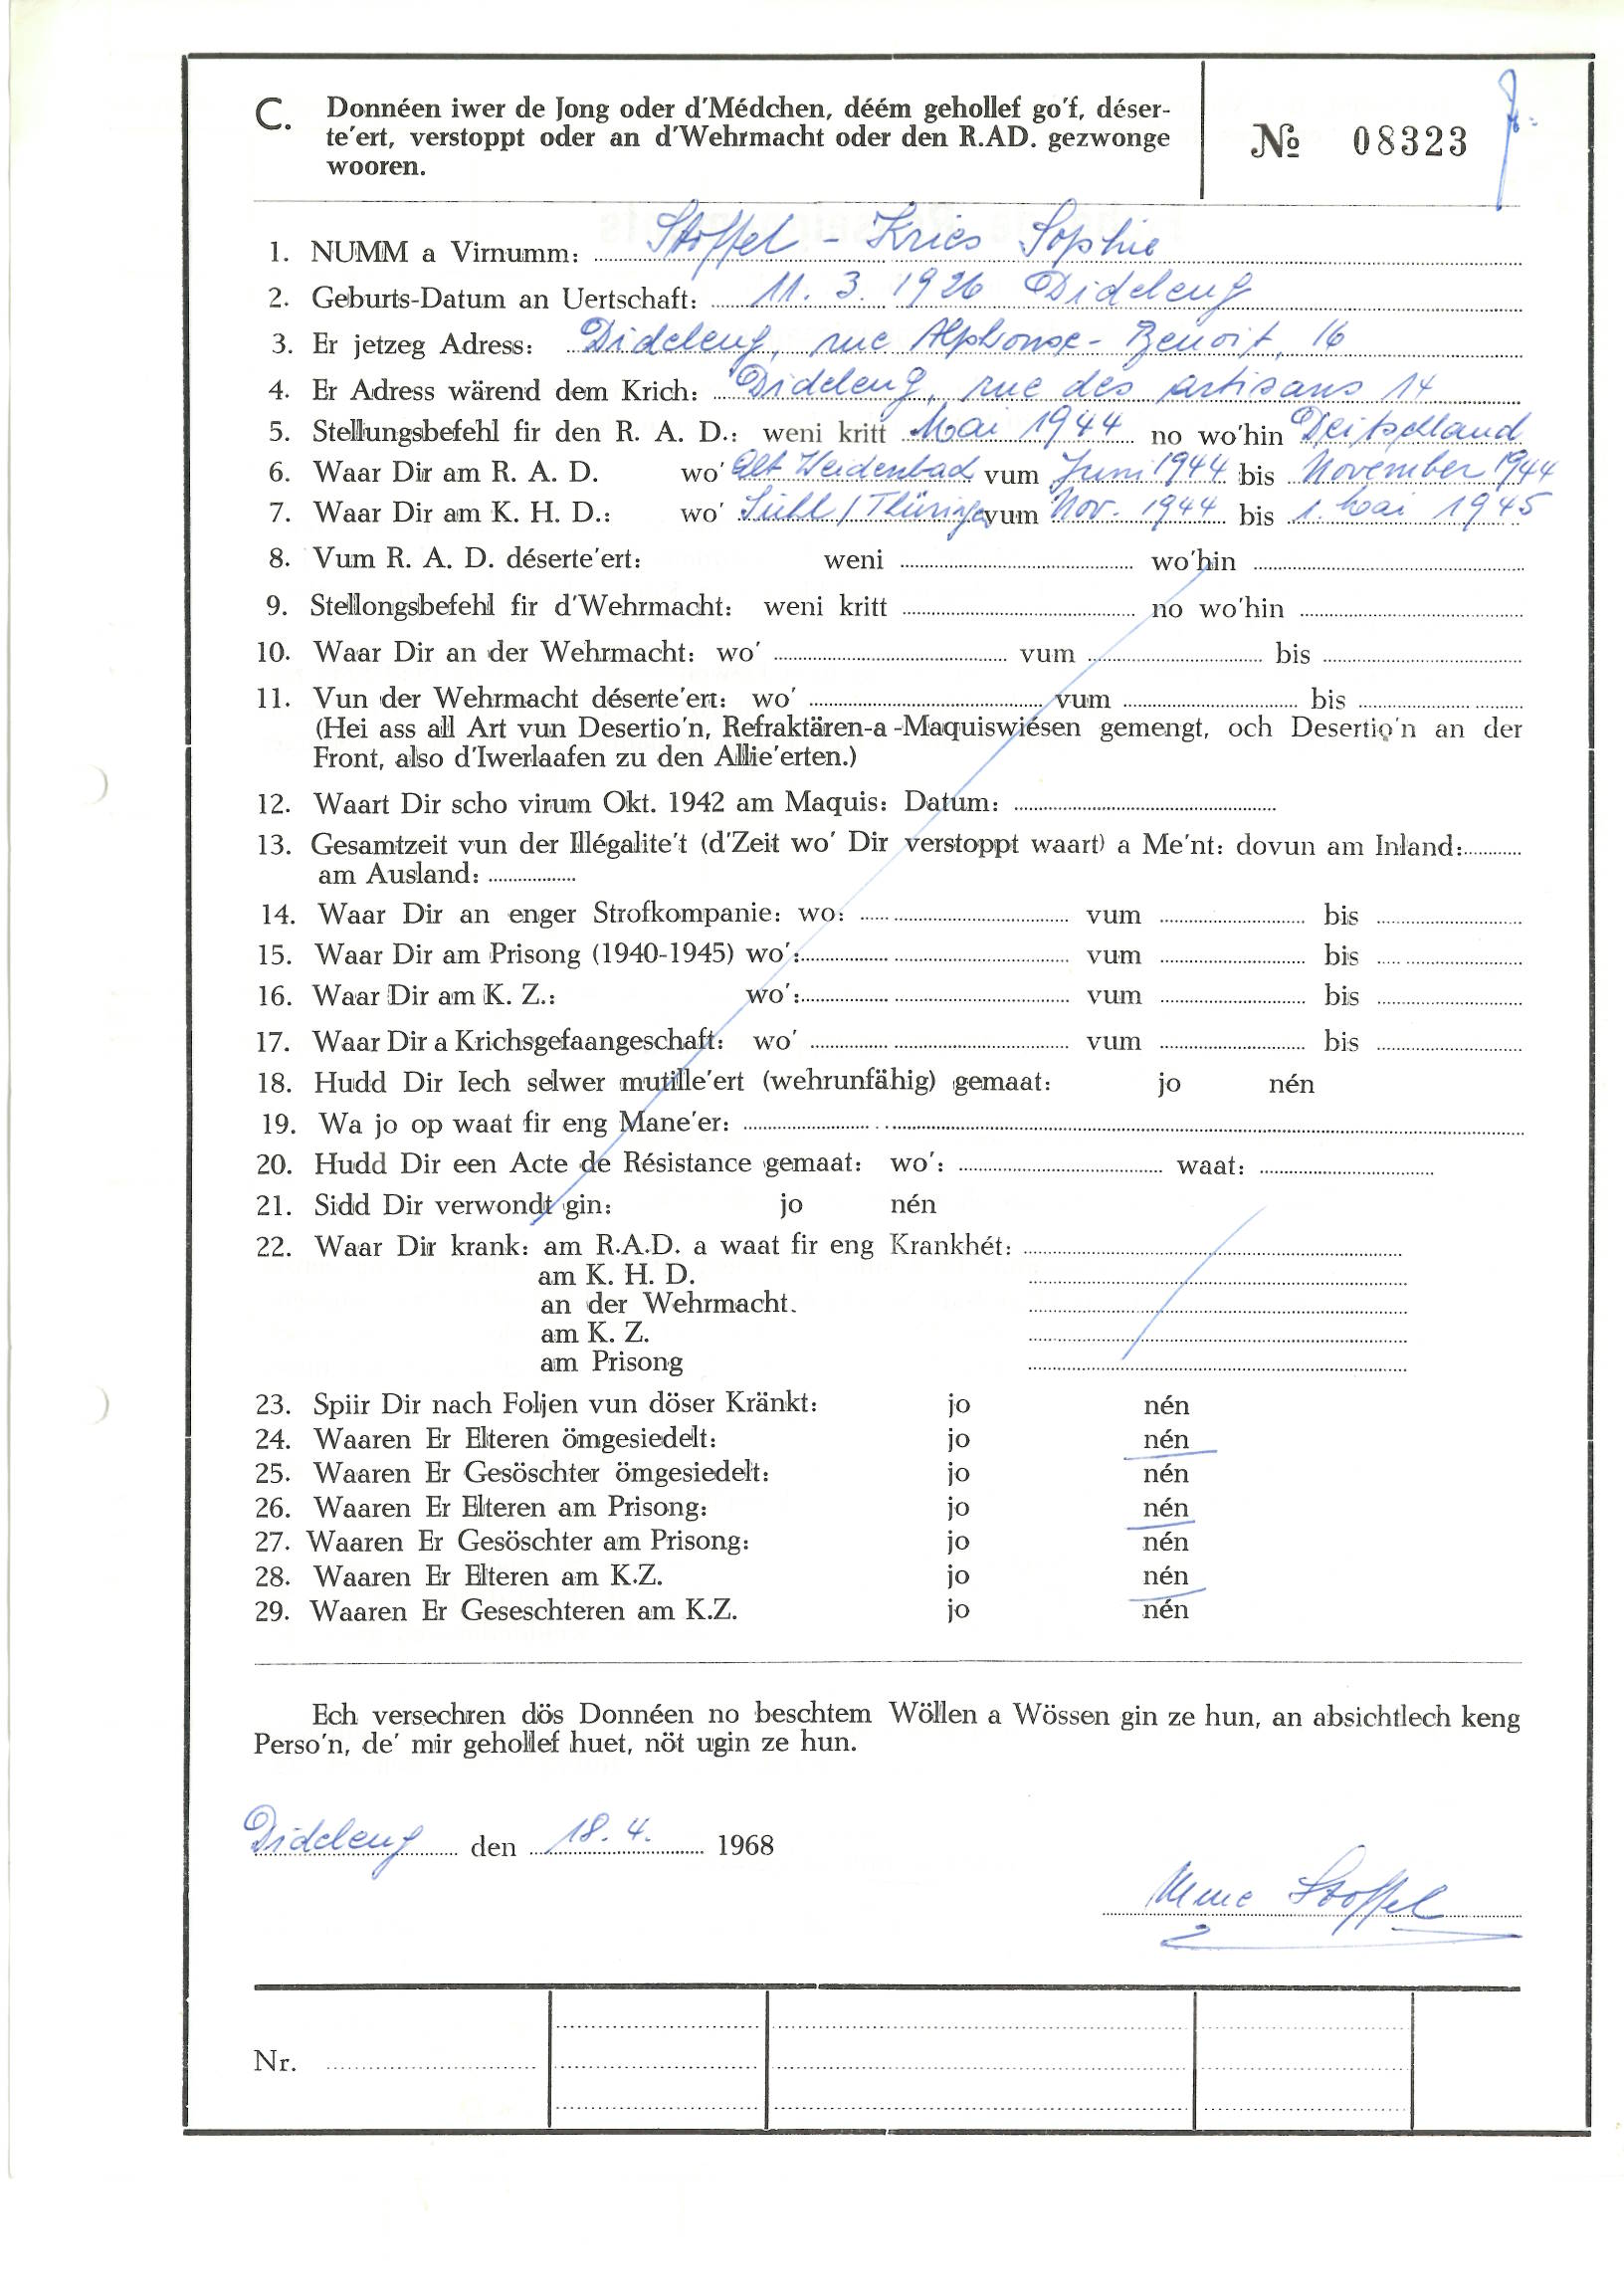 C. Donnéen iwer de Jong oder d'Médchen, déém gehollef go'f, déser-
te'ert, verstoppt oder an d'Wehrmacht oder den R.AD. gezwonge
wooren.
№ 08323
1. NUMM a Virnumm: Stoffel - Kries Sophie
2. Geburts-Datum an Uertschaft: 11. 3. 1926 Dideleng
3. Er jetzeg Adress: Dideleng, rue Alphonse-Benoit, 16
4. Er Adress wärend dem Krich: Dideleng, rue des artisans 14
5. Stellungsbefehl fir den R. A. D.: weni kritt Mai 1944 no wo'hin Deitschland
6. Waar Dir am R. A. D. wo' Alt Weidenbad vum Juni 1944 bis November 1944
7. Waar Dir am K. H. D.: wo' Suhl / Thüringen vum Nov. 1944 bis 1. Mai 1945
8. Vum R. A. D. déserte'ert: weni wo'hin
9. Stellongsbefehl fir d'Wehrmacht: weni kritt no wo'hin
10. Waar Dir an der Wehrmacht: wo' vum bis
11. Vun der Wehrmacht déserte'ert: wo' vum bis
(Hei ass all Art vun Desertio'n, Refraktären-a -Maquiswiésen gemengt, och Desertio'n an der
Front, also d'Iwerlaafen zu den Allie'erten.)
12. Waart Dir scho virum Okt. 1942 am Maquis: Datum:
13. Gesamtzeit vun der Illégalite't (d'Zeit wo' Dir verstoppt waart) a Me'nt: dovun am Inland:
am Ausland:
14. Waar Dir an enger Strofkompanie: wo: vum bis
15. Waar Dir am Prisong (1940-1945) wo': vum bis
16. Waar Dir am K. Z.: wo': vum bis
17. Waar Dir a Krichsgefaangeschaft: wo' vum bis
18. Hudd Dir Iech selwer mutille'ert (wehrunfähig) gemaat: jo nén
19. Wa jo op waat fir eng Mane'er:
20. Hudd Dir een Acte de Résistance gemaat: wo': waat:
21. Sidd Dir verwondt gin: jo nén
22. Waar Dir krank: am R.A.D. a waat fir eng Krankhét:
am K. H. D.
an der Wehrmacht.
am K. Z.
am Prisong
23. Spiir Dir nach Foljen vun döser Kränkt: jo nén
24. Waaren Er Elteren ömgesiedelt: jo nén
25. Waaren Er Gesöschter ömgesiedelt: jo nén
26. Waaren Er Elteren am Prisong: jo nén
27. Waaren Er Gesöschter am Prisong: jo nén
28. Waaren Er Elteren am K.Z. jo nén
29. Waaren Er Geseschteren am K.Z. jo nén
Ech versechren dös Donnéen no beschtem Wöllen a Wössen gin ze hun, an absichtlech keng
Perso'n, de' mir gehollef huet, nöt ugin ze hun.
Dideleng den 18. 4. 1968
Mme Stoffel
Nr.